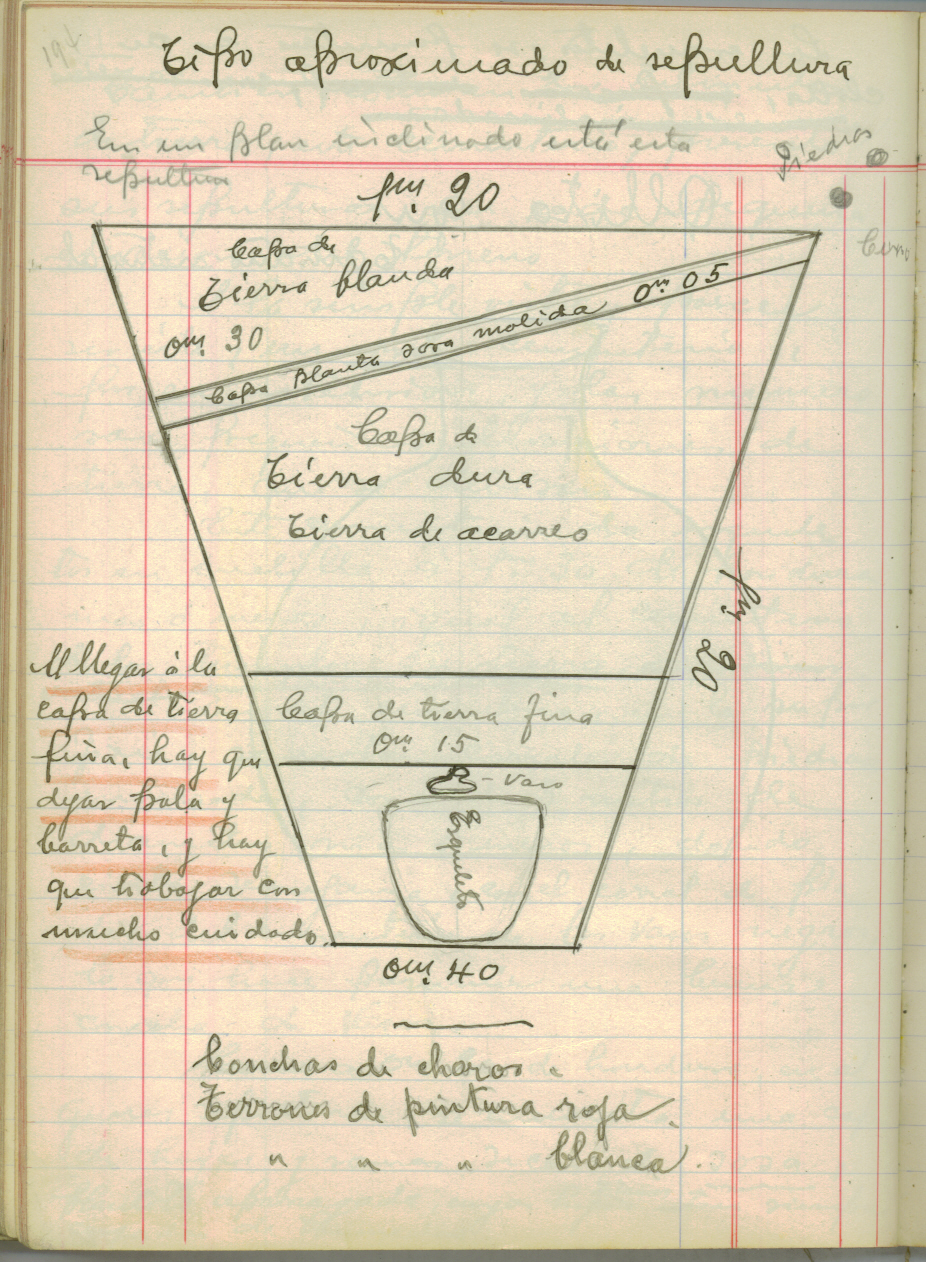 194
Tipo aproximado de sepulltura
En un plan inclinado está esta
sepultura
Piedras
1m. 20
Cerro
Capa de
Tierra blanda
0m. 30
Capa planta sora molida 0m. 05
Capa de
Tierra dura
Tierra de acarreo
1m 20
Al llegar á la
capa de tierra
fina, hay que
dejar pala y
barreta, y hay
que trabajar con
mucho cuidado.
Capa de tierra fina
0m. 15
- vaso
Esqueleto
0m. 40
Conchas de choros.
Terrones de pintura roja.
" " " blanca.